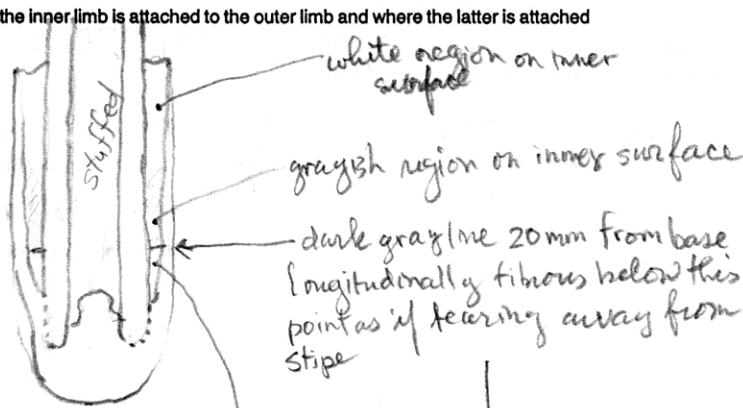 the inner limb is attached to the outer limb and where the latter is attached
white region on inner
surface
stuffed
grayish region on inner surface
dark gray line 20 mm from base
longitudinally fibrous below this
point as if tearing away from
stipe